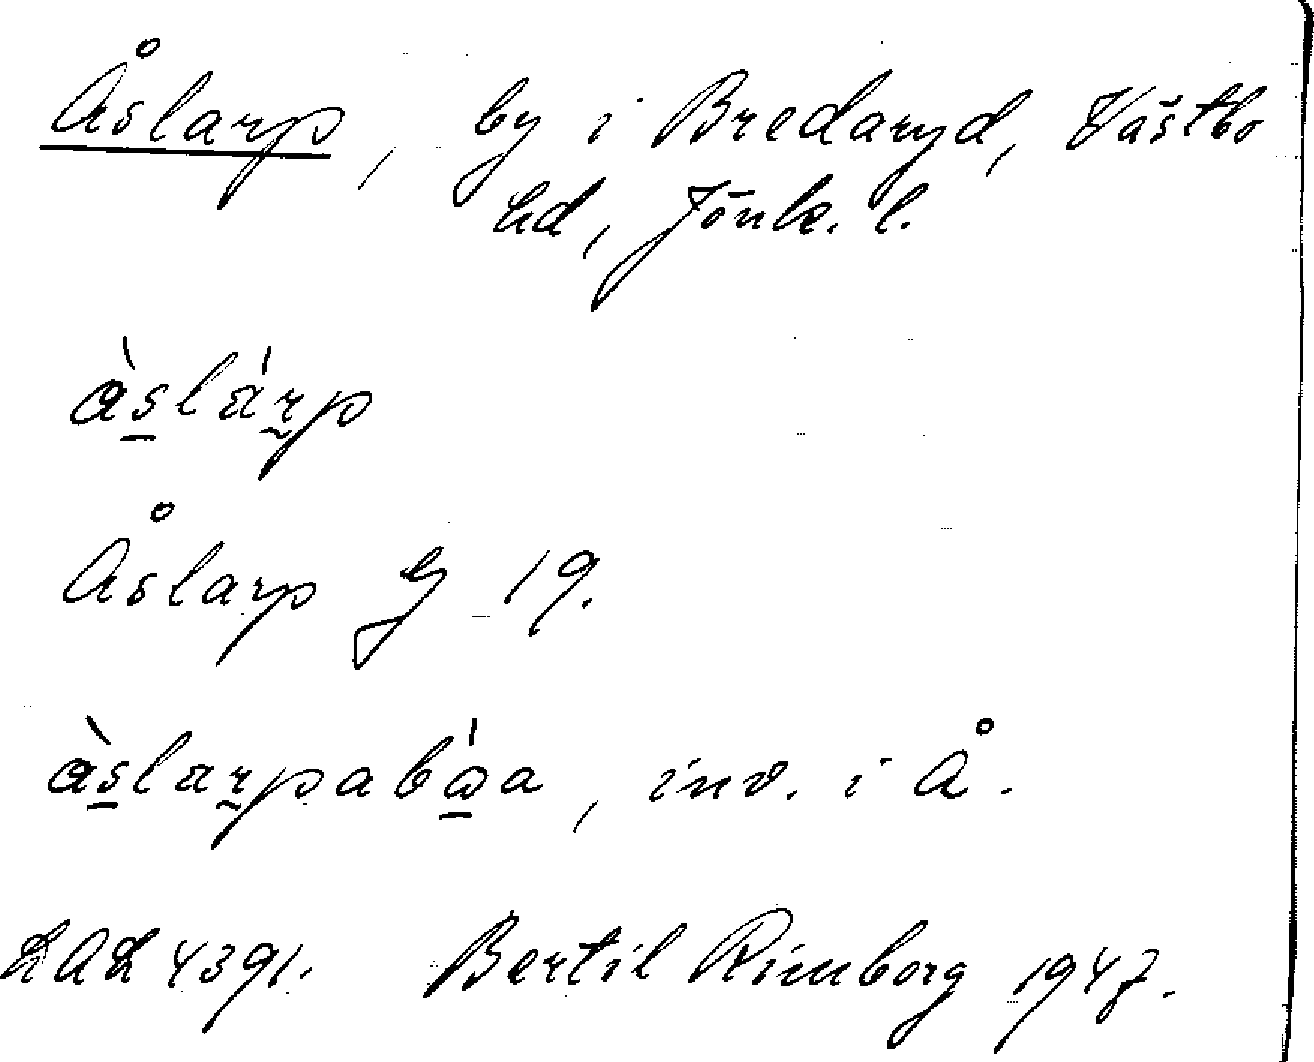 Åslarp, by i Bredaryd, Västbo
hd, Jönk. l.
àslárp
Åslarp G 19.
àslarpabóa, inv. i Å.
LAL 4391. Bertil Rimborg 1947.